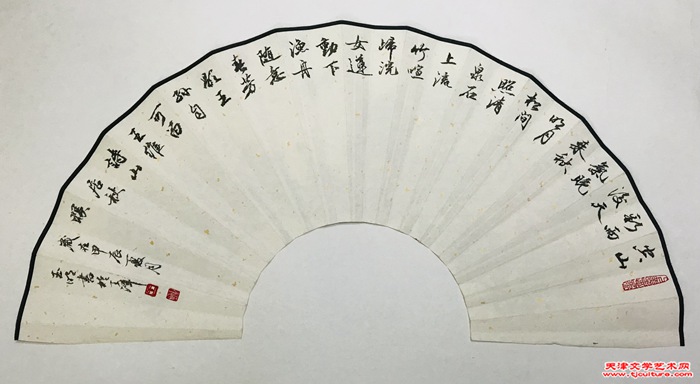 空山
新雨
後天
氣晚
来秋
明月
松间
照清
泉石
上流
竹喧
歸浣
女蓮
動下
渔舟
随意
春芳
歇王
孙自
可留
王維
詩山
居秋
暝
歲在甲辰夏月
玉書於天津
天津文学艺术网
www.tjculture.com